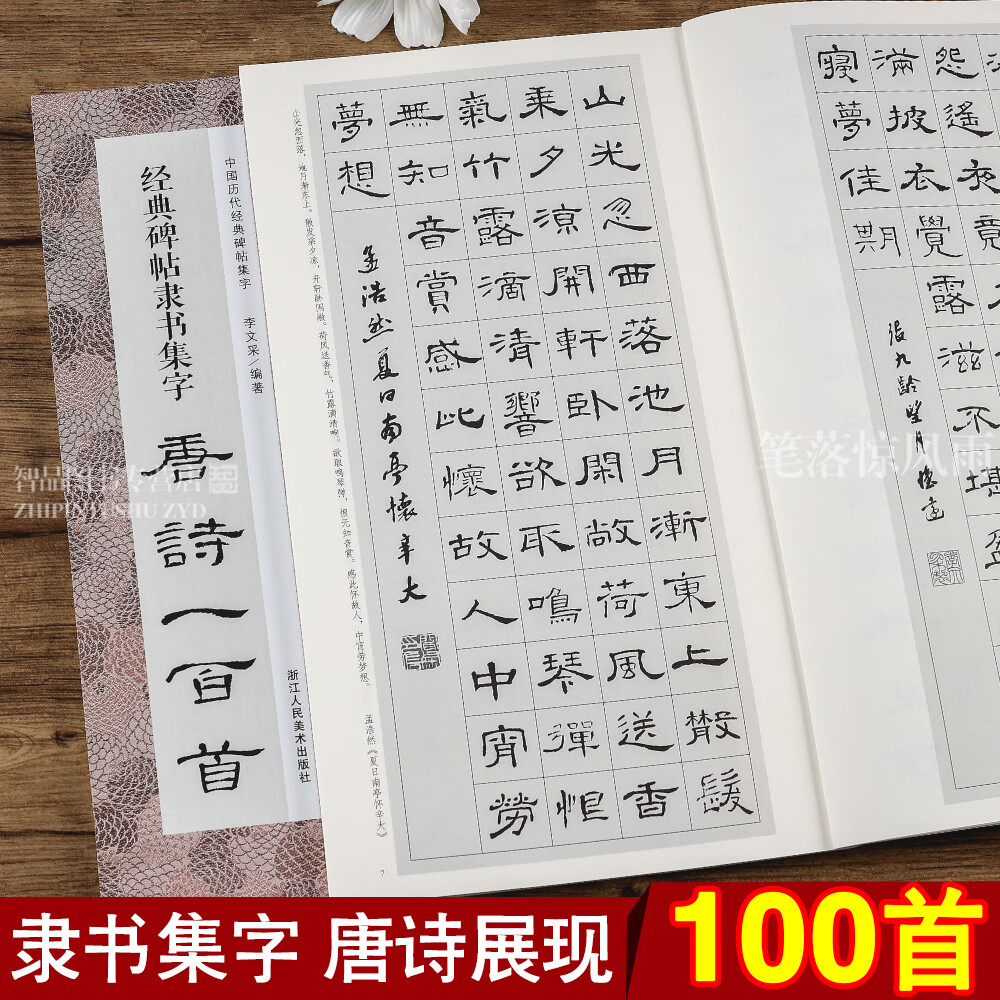 中国历代经典碑帖集字
李文采／编著
经典碑帖隶书集字
唐詩一百首
浙江人民美术出版社
山光忽西落池月漸東上散髮
乘夕凉開軒卧閑敞荷風送香
氣竹露滴清響欲取鳴琴彈恨
無知音賞感此懷故人中宵勞
夢想
孟浩然夏日南亭懷辛大
山光忽西落，池月渐东上。散发乘夕凉，开轩卧闲敞。荷风送香气，竹露滴清响。欲取鸣琴弹，恨无知音赏。感此怀故人，中宵劳梦想。
孟浩然《夏日南亭怀辛大》
7
怨遙夜竟
滿披衣覺露滋不堪盈
寢夢佳期
張九齡望月懷遠
笔落惊风雨
ZHIPINTUSHU ZYD
隶书集字 唐诗展现 100首